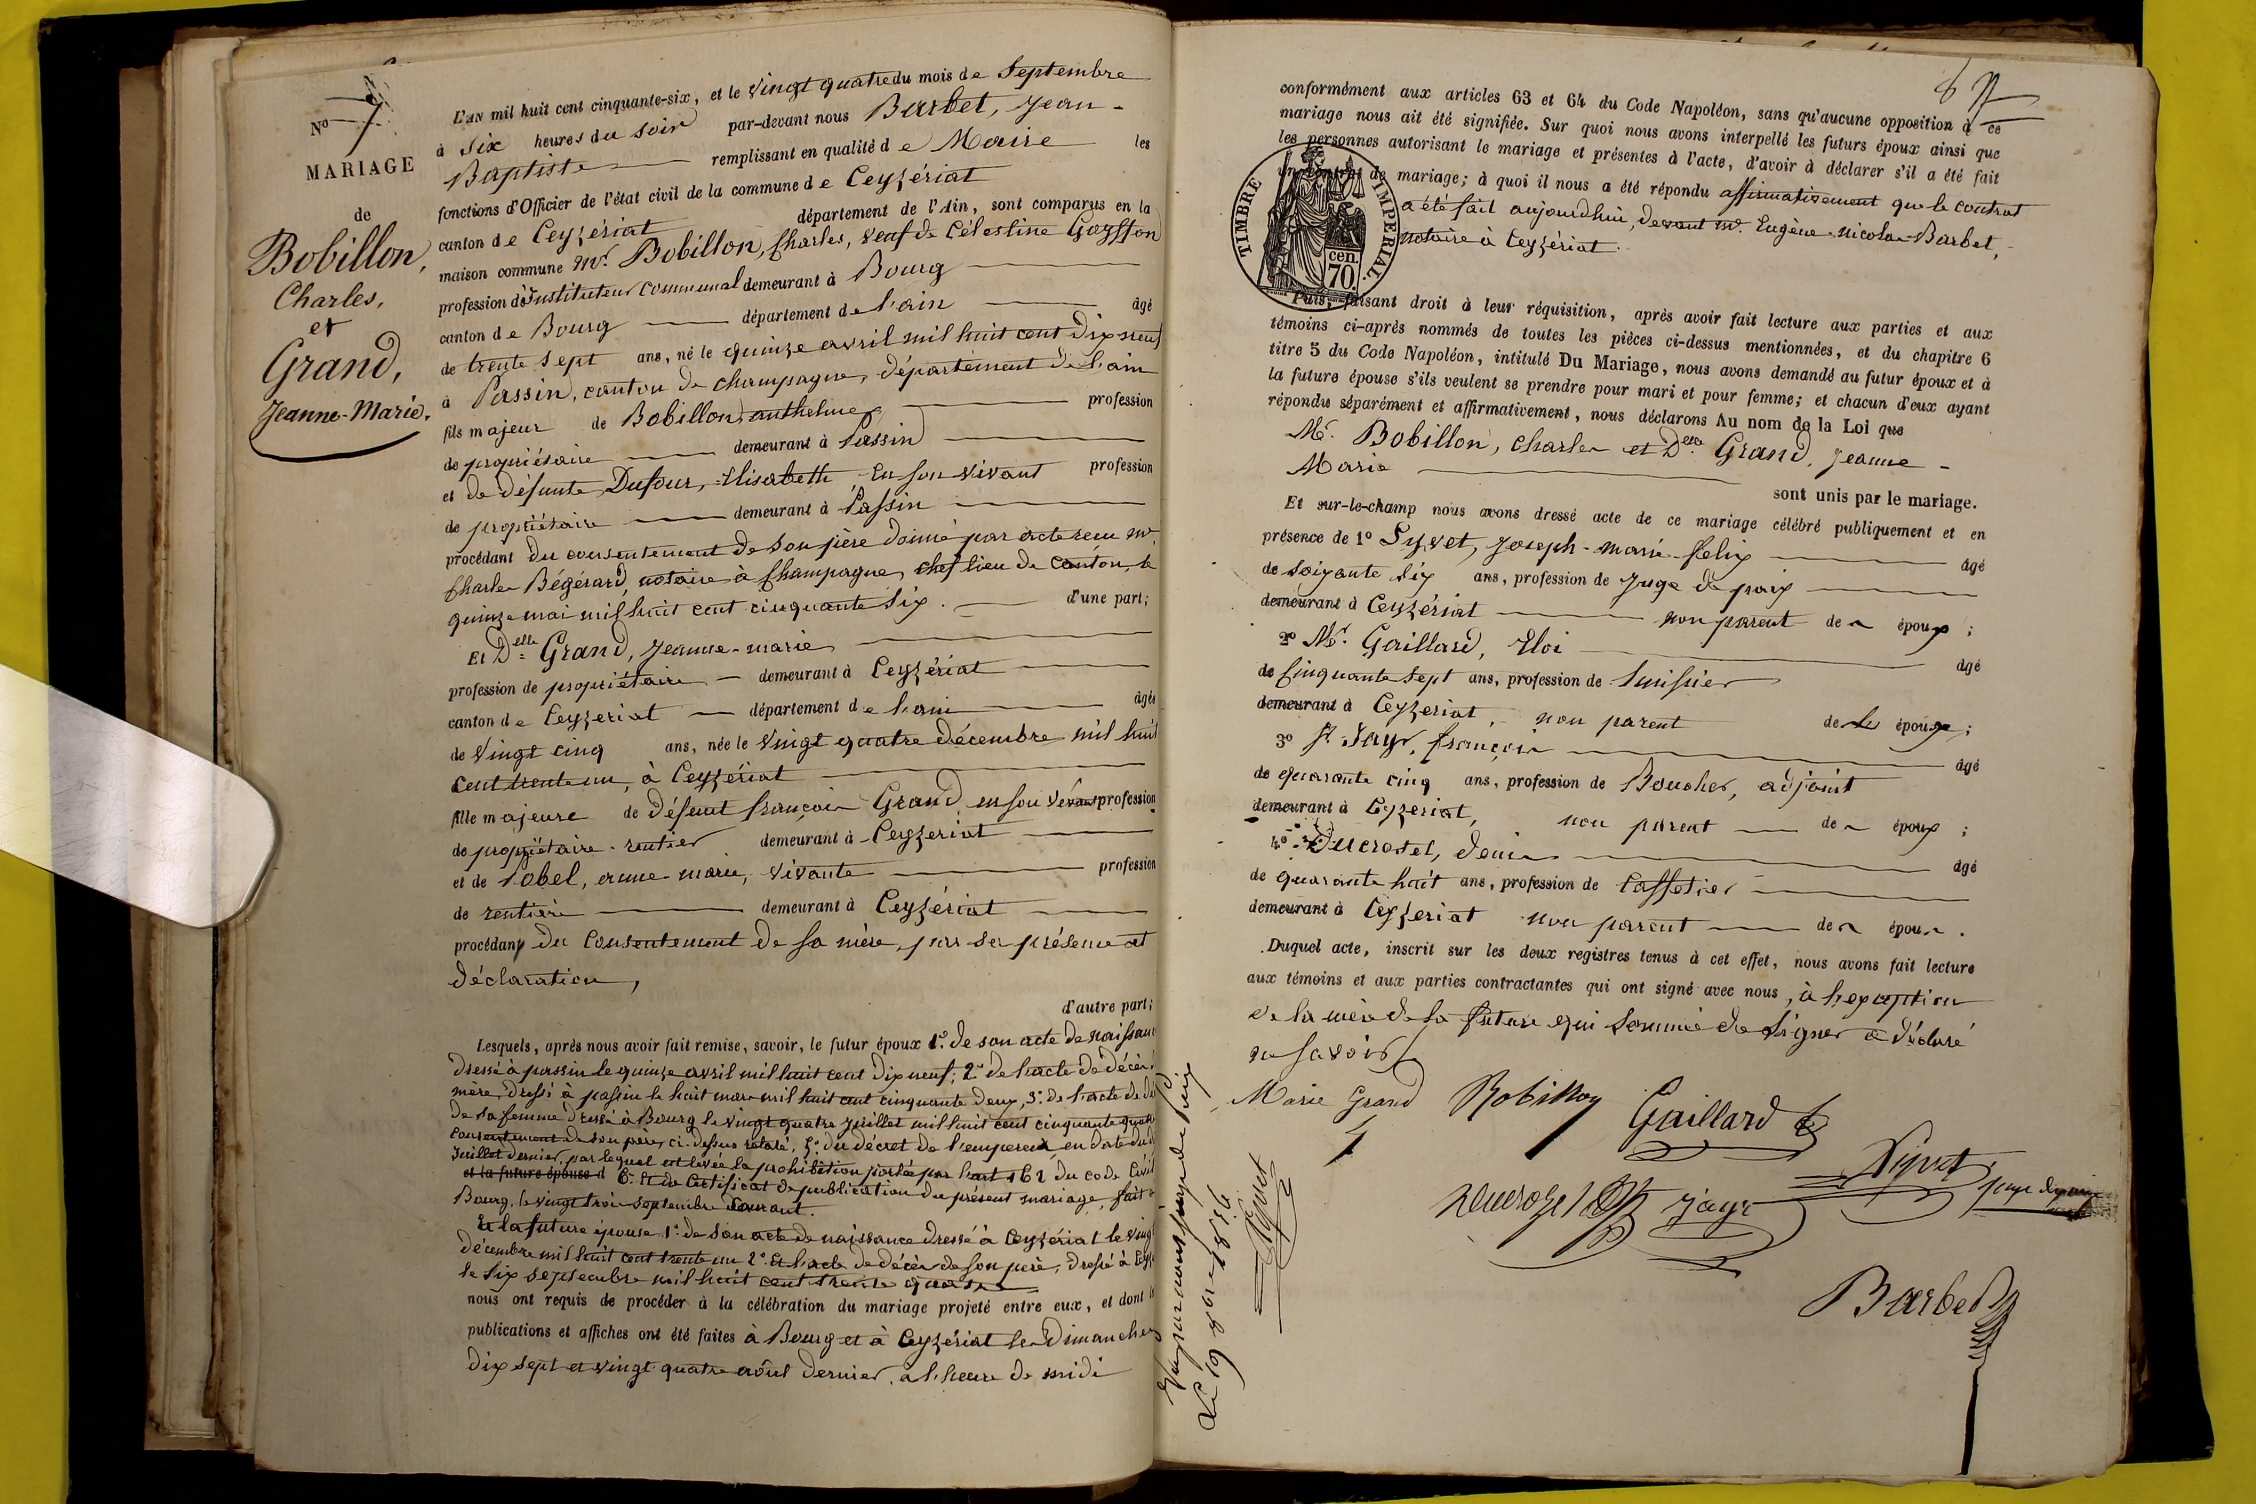 No 7
MARIAGE
de
Bobillon,
Charles,
et
Grand,
Jeanne-Marie.
L'AN mil huit cent cinquante-six, et le vingt quatre du mois de Septembre
à six heures du soir par-devant nous Barbet, Jean-
Baptiste remplissant en qualité de Maire les
fonctions d'Officier de l'état civil de la commune de Ceyzériat
canton de Ceyzériat département de l'Ain, sont comparus en la
maison commune Mr. Bobillon, Charles, veuf de Célestine
profession d'Instituteur communal demeurant à Bourg
canton de Bourg département de l'ain âgé
de trente sept ans, né le quinze avril mil huit cent dix neuf
à Passin, canton de champagne, département de l'ain
fils majeur de Bobillon, anthelme profession
de propriétaire demeurant à Passin
et de défunte Dufour, Elisabeth, en son vivant profession
de propriétaire demeurant à Passin
procédant du consentement de son père donné par acte reçu Mr.
Charles Bégérard, notaire à Champagne, chef lieu de canton, le
quinze mai mil huit cent cinquante six. d'une part;
Et Delle Grand, Jeanne-marie
profession de propriétaire demeurant à Ceyzériat
canton de Ceyzeriat département de l'ain âgée
de vingt cinq ans, née le vingt quatre décembre mil huit
cent trente un, à Ceyzériat
fille majeure de défunt françois Grand en son vivant profession
de propriétaire-rentier demeurant à Ceyzeriat
et de anne marie, vivante profession
de rentière demeurant à Ceyzériat
procédant du consentement de sa mère, par sa présence et
déclaration,
d'autre part;
Lesquels, après nous avoir fait remise, savoir, le futur époux 1º. de son acte de naissance
dressé à passin le quinze avril mil huit cent dix neuf; 2º de l'acte de décès
mère, dressé à passin le huit mars mil huit cent cinquante deux, 3º. de l'acte de
de sa femme dressé à Bourg le vingt quatre juillet mil huit cent cinquante quatre
consentement de son père, ci-dessus relaté, 5º. du décret de l'empereur en date du
Juillet dernier, par lequel est levée la prohibition portée par l'art 162 du code Civil
et la future épouse d 6º. Et du certificat de publication du présent mariage, fait à
Bourg, le vingt trois septembre courant.
Et la future épouse 1º. de son acte de naissance dressé à Ceyzériat le vingt
décembre mil huit cent trente un 2º. Et l'acte de décès de son père, dressé à
le six septembre mil huit cent trente quatre
nous ont requis de procéder à la célébration du mariage projeté entre eux, et dont
publications et affiches ont été faites à Bourg et à Ceyzériat les Dimanches
dix sept et vingt quatre août dernier, à l'heure de midi
conformément aux articles 63 et 64 du Code Napoléon, sans qu'aucune opposition à ce
mariage nous ait été signifiée. Sur quoi nous avons interpellé les futurs époux ainsi que
les personnes autorisant le mariage et présentes à l'acte, d'avoir à déclarer s'il a été fait
un contrat de mariage; à quoi il nous a été répondu affirmativement que le contrat
a été fait aujourd'hui, devant Mr. Eugène-nicolas Barbet,
notaire à Ceyzériat.
TIMBRE IMPERIAL
cen.
70.
Puis, faisant droit à leur réquisition, après avoir fait lecture aux parties et aux
témoins ci-après nommés de toutes les pièces ci-dessus mentionnées, et du chapitre 6
titre 5 du Code Napoléon, intitulé Du Mariage, nous avons demandé au futur époux et à
la future épouse s'ils veulent se prendre pour mari et pour femme; et chacun d'eux ayant
répondu séparément et affirmativement, nous déclarons Au nom de la Loi que
Mr. Bobillon, Charles et Delle Grand, Jeanne-
Marie
sont unis par le mariage.
Et sur-le-champ nous avons dressé acte de ce mariage célébré publiquement et en
présence de 1º Joseph-marie-felix âgé
de soixante six ans, profession de Juge de paix
demeurant à Ceyzériat non parent de époux;
2º Mr. Gaillard, Eloi âgé
de cinquante sept ans, profession de huissier
demeurant à Ceyzeriat, non parent de les époux;
3º Jayr, françois âgé
de quarante cinq ans, profession de Boucher, adjoint
demeurant à Ceyzeriat, non parent de époux;
4º Ducrozet, denis âgé
de quarante huit ans, profession de Caffetier
demeurant à Ceyzeriat non parent de époux.
Duquel acte, inscrit sur les deux registres tenus à cet effet, nous avons fait lecture
aux témoins et aux parties contractantes qui ont signé avec nous, à l'exception
de la mère de la future qui sommée de signer a déclaré
ne savoir
Marie Grand Bobillon Gaillard
Ducrozet Jayr juge de paix
Barbet
juge de Paix
Le 19 8bre 1856